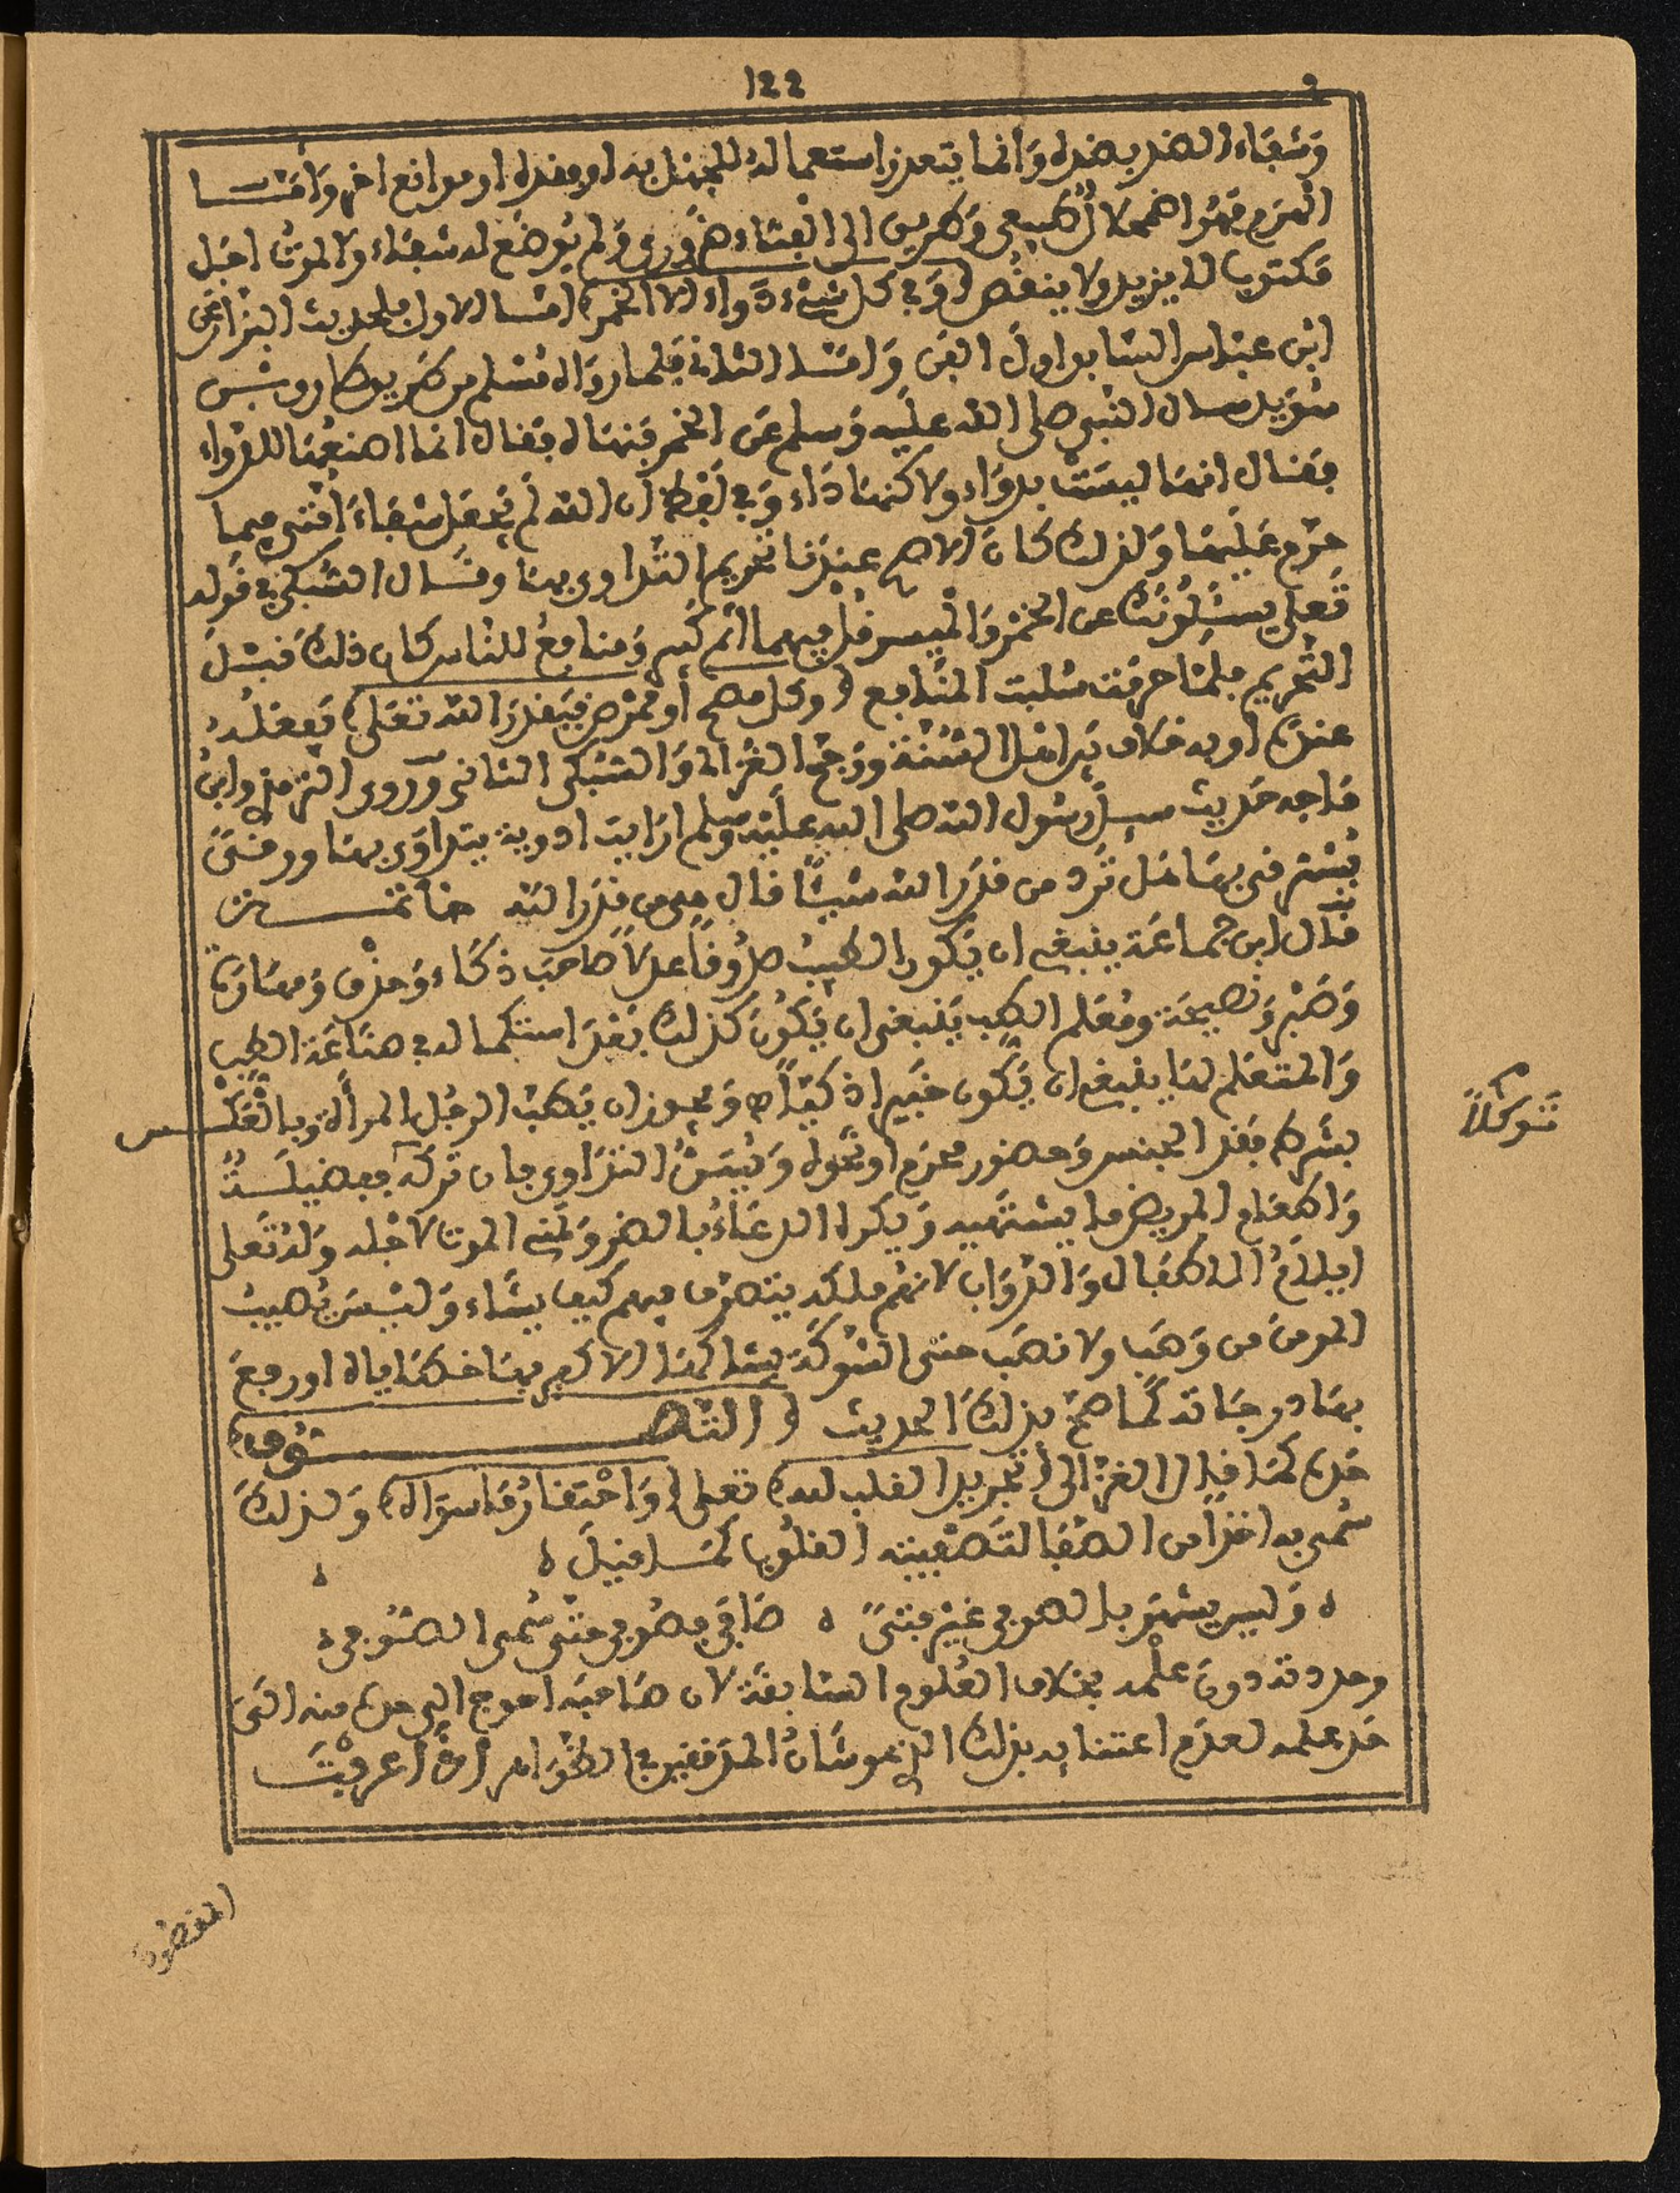 122
وشفاء الضد بضده وانما يتعذر استعماله للجهل به او فقده او موانع اخر واما
الهرم فهو اضمحلال طبيعي وطريق الى الفناء ضروري ولم يوضع له شفاء والموت اجل
مكتوب لا يزيد ولا ينقص (وفي كل شيء دواء الا الخمر) اما الاول فلحديث البزار عن
ابن عباس السابق اول الفن واما الثاني فلما رواه مسلم من طريق طارق بن
سويد سال النبي صلى الله عليه وسلم عن الخمر فنهاه فقال انما اصنعها للدواء
فقال انها ليست بدواء ولاكنها داء وفي لفظ ان الله لم يجعل شفاء امتي فيما
حرم عليها ولذلك كان الاصح عندنا تحريم التداوي بها وقال السبكي في قوله
تعلى يسئلونك عن الخمر والميسر قل فيهما اثم كبير ومنافع للناس كان ذلك قبل
التحريم فلما حرمت سلبت المنافع (وكل مصح او ممرض فبقدر الله تعلى) يفعله
عنده او به خلاف بين اهل السنة ورجح الغزالي والسبكي الثاني وروى الترمذي وابن
ماجه حديث سيل رسول الله صلى الله عليه وسلم ارايت ادوية يتداوى بها ورقى
يسترقى بها هل ترد من قدر الله شيئا قال هي من قدر الله خاتمة
قال ابن جماعة ينبغي ان يكون الطبيب صدوقا عدلا صاحب ذكاء وحذق ومهارة
وصبر ونصيحة ومعلم الطب ينبغي ان يكون كذلك بعد استكماله في صناعة الطب
والمتعلم لها ينبغي ان يكون خيرا ذكيا ويجوز ان يطب الرجل المراة وبالعكس
بشرط فقد الجنس وحضور محرم او نحوه ويسن التداوي فان تركه ففضيلة
توكلا
واطعام المريض ما يشتهيه ويكره الدعاء بالضر وتمني الموت لاجله وله تعلى
ايلام الاطفال والدواب لانهم ملكه يتصرف فيهم كيف يشاء وليس يصيب
المومن من وصب ولا نصب حتى الشوكة يشاكها الا كفر بها خطاياه او رفع
بها درجاته كما صح بذلك الحديث (التصوف)
حده كما قال الغزالي (تجريد القلب لله) تعلى (واحتقار ما سواه) ولذلك
سمي به اخذا من الصفا لتصفيته القلوب كما قيل ه ه
ه وليس يشهر بالصوفي غير فتى ه صافى فصوفي حتى سمي الصوفي ه
وحددته دون علمه بخلاف العلوم السابقة لان صاحبه احوج الى حده منه الى
حد علمه لعدم اعتنايه بذلك الذي هو شان المدققين في الظواهر اذا عرفت
المقصود